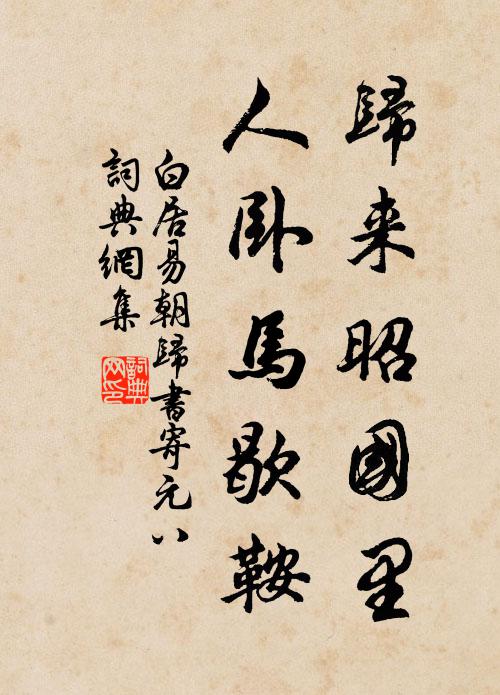 歸来昭國里
人卧馬歇鞍
白居易朝歸書寄元八
詞典網集
詞典網印